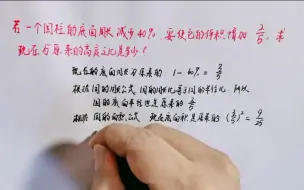 若一个圆柱的底面周长减少40%,要使它的体积增加 2/5,求
现在与原来的高度之比是多少?
现在的底面周长为原来的 1-40%= 3/5
根据圆的周长公式 圆的周长比等于圆的半径比,所以
圆的底面半径也是原来的 3/5
根据 圆的面积公式 现在底面积是原来的 (3/5)²= 9/25